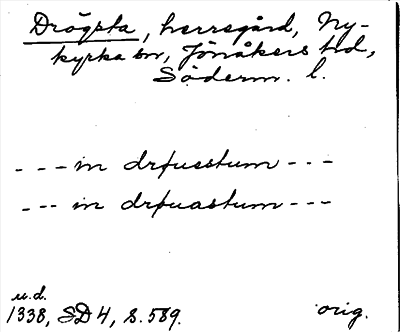 Drögsta, herregård, Ny-
kyrka sn, Jönåkers hd,
Söderm. l.
- - - in drfusstum - - -
- - - in drfuastum - - -
u.d.
1338, SD 4, s. 589. orig.